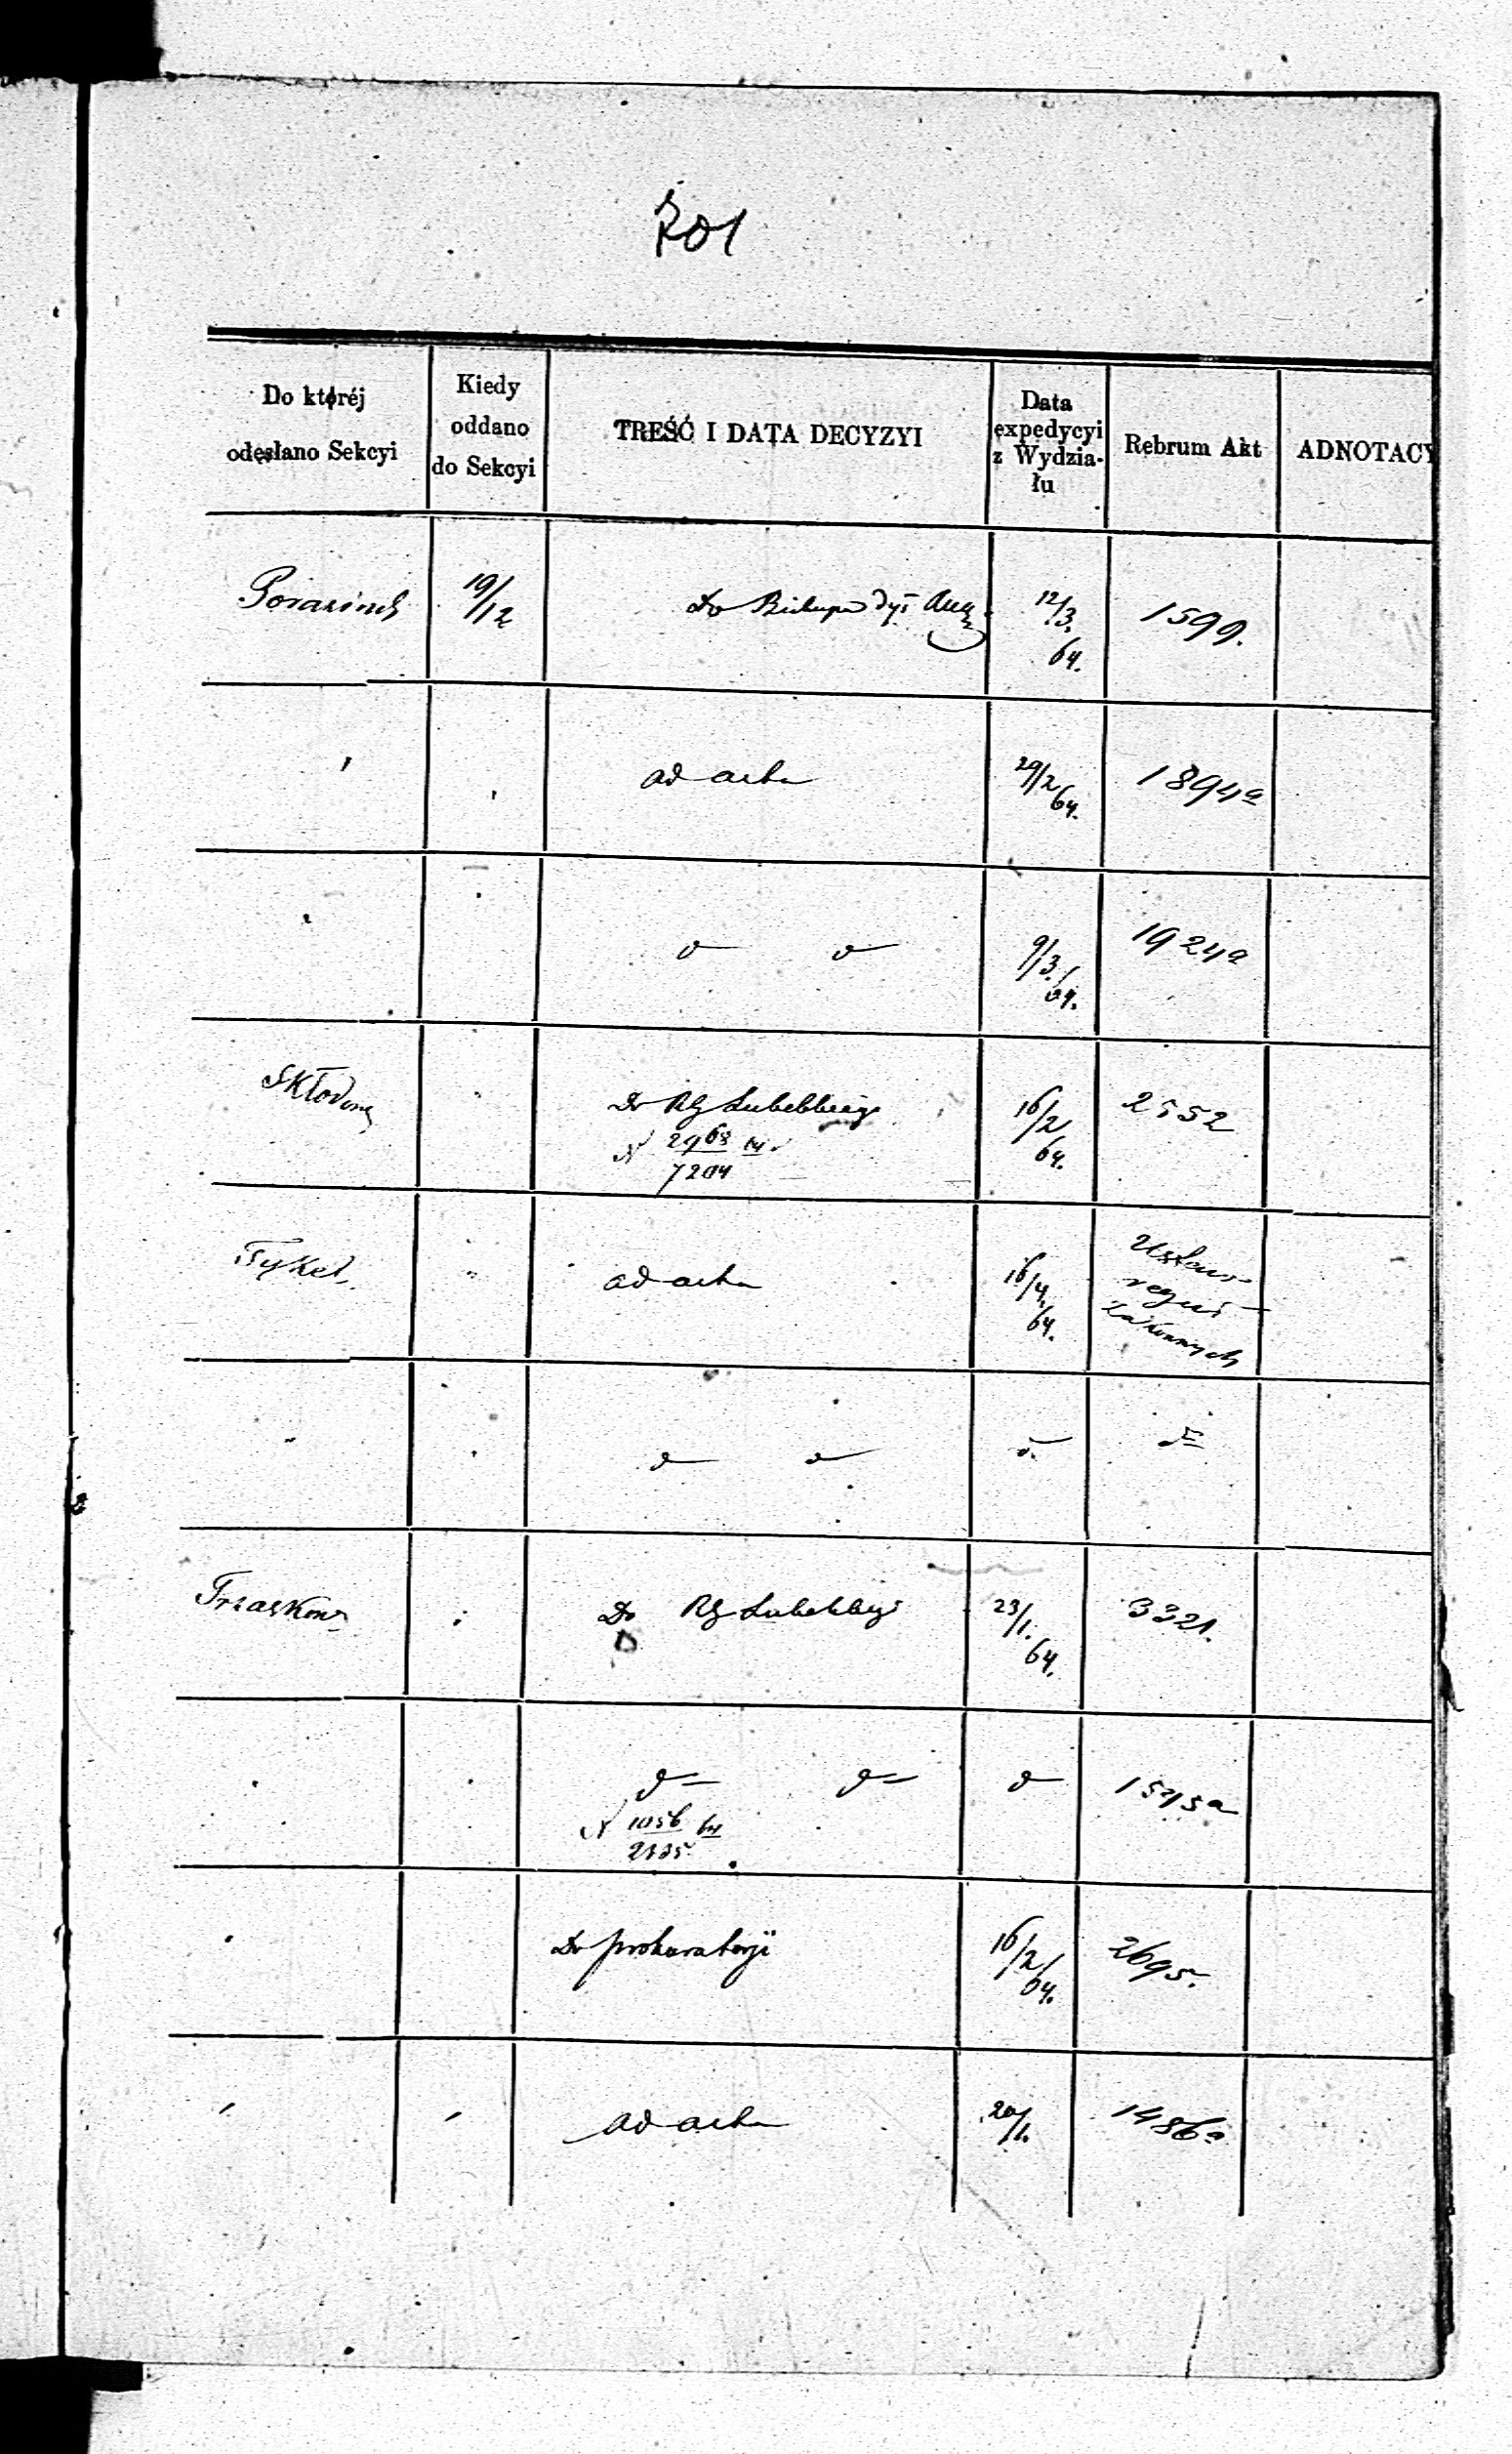 201
Do któréj
odesłano Sekcyi
Kiedy
oddano
do Sekcyi
TREŚĆ I DATA DECYZYI
Data
expedycyi
z Wydzia-
łu
Rebrum Akt
ADNOTACY
19/12
Do Biskupa Dyi Aug
12/3.
64.
1599.
ad acta
29/2
64.
1894a
9/3.
64.
1924a
Skłodow
Do RG Lubelskiego
N 2968/7204 64
16/2
64.
2552
Tykel.
ad acta
16/4.
64.
zakonnych
Trzaskow
Do RG Lubelskiego
23/1.
64.
3321.
N 1056/2135 64
1545a
Do prokuratorji
16/2
64.
2695.
ad acta
20/1.
1486a